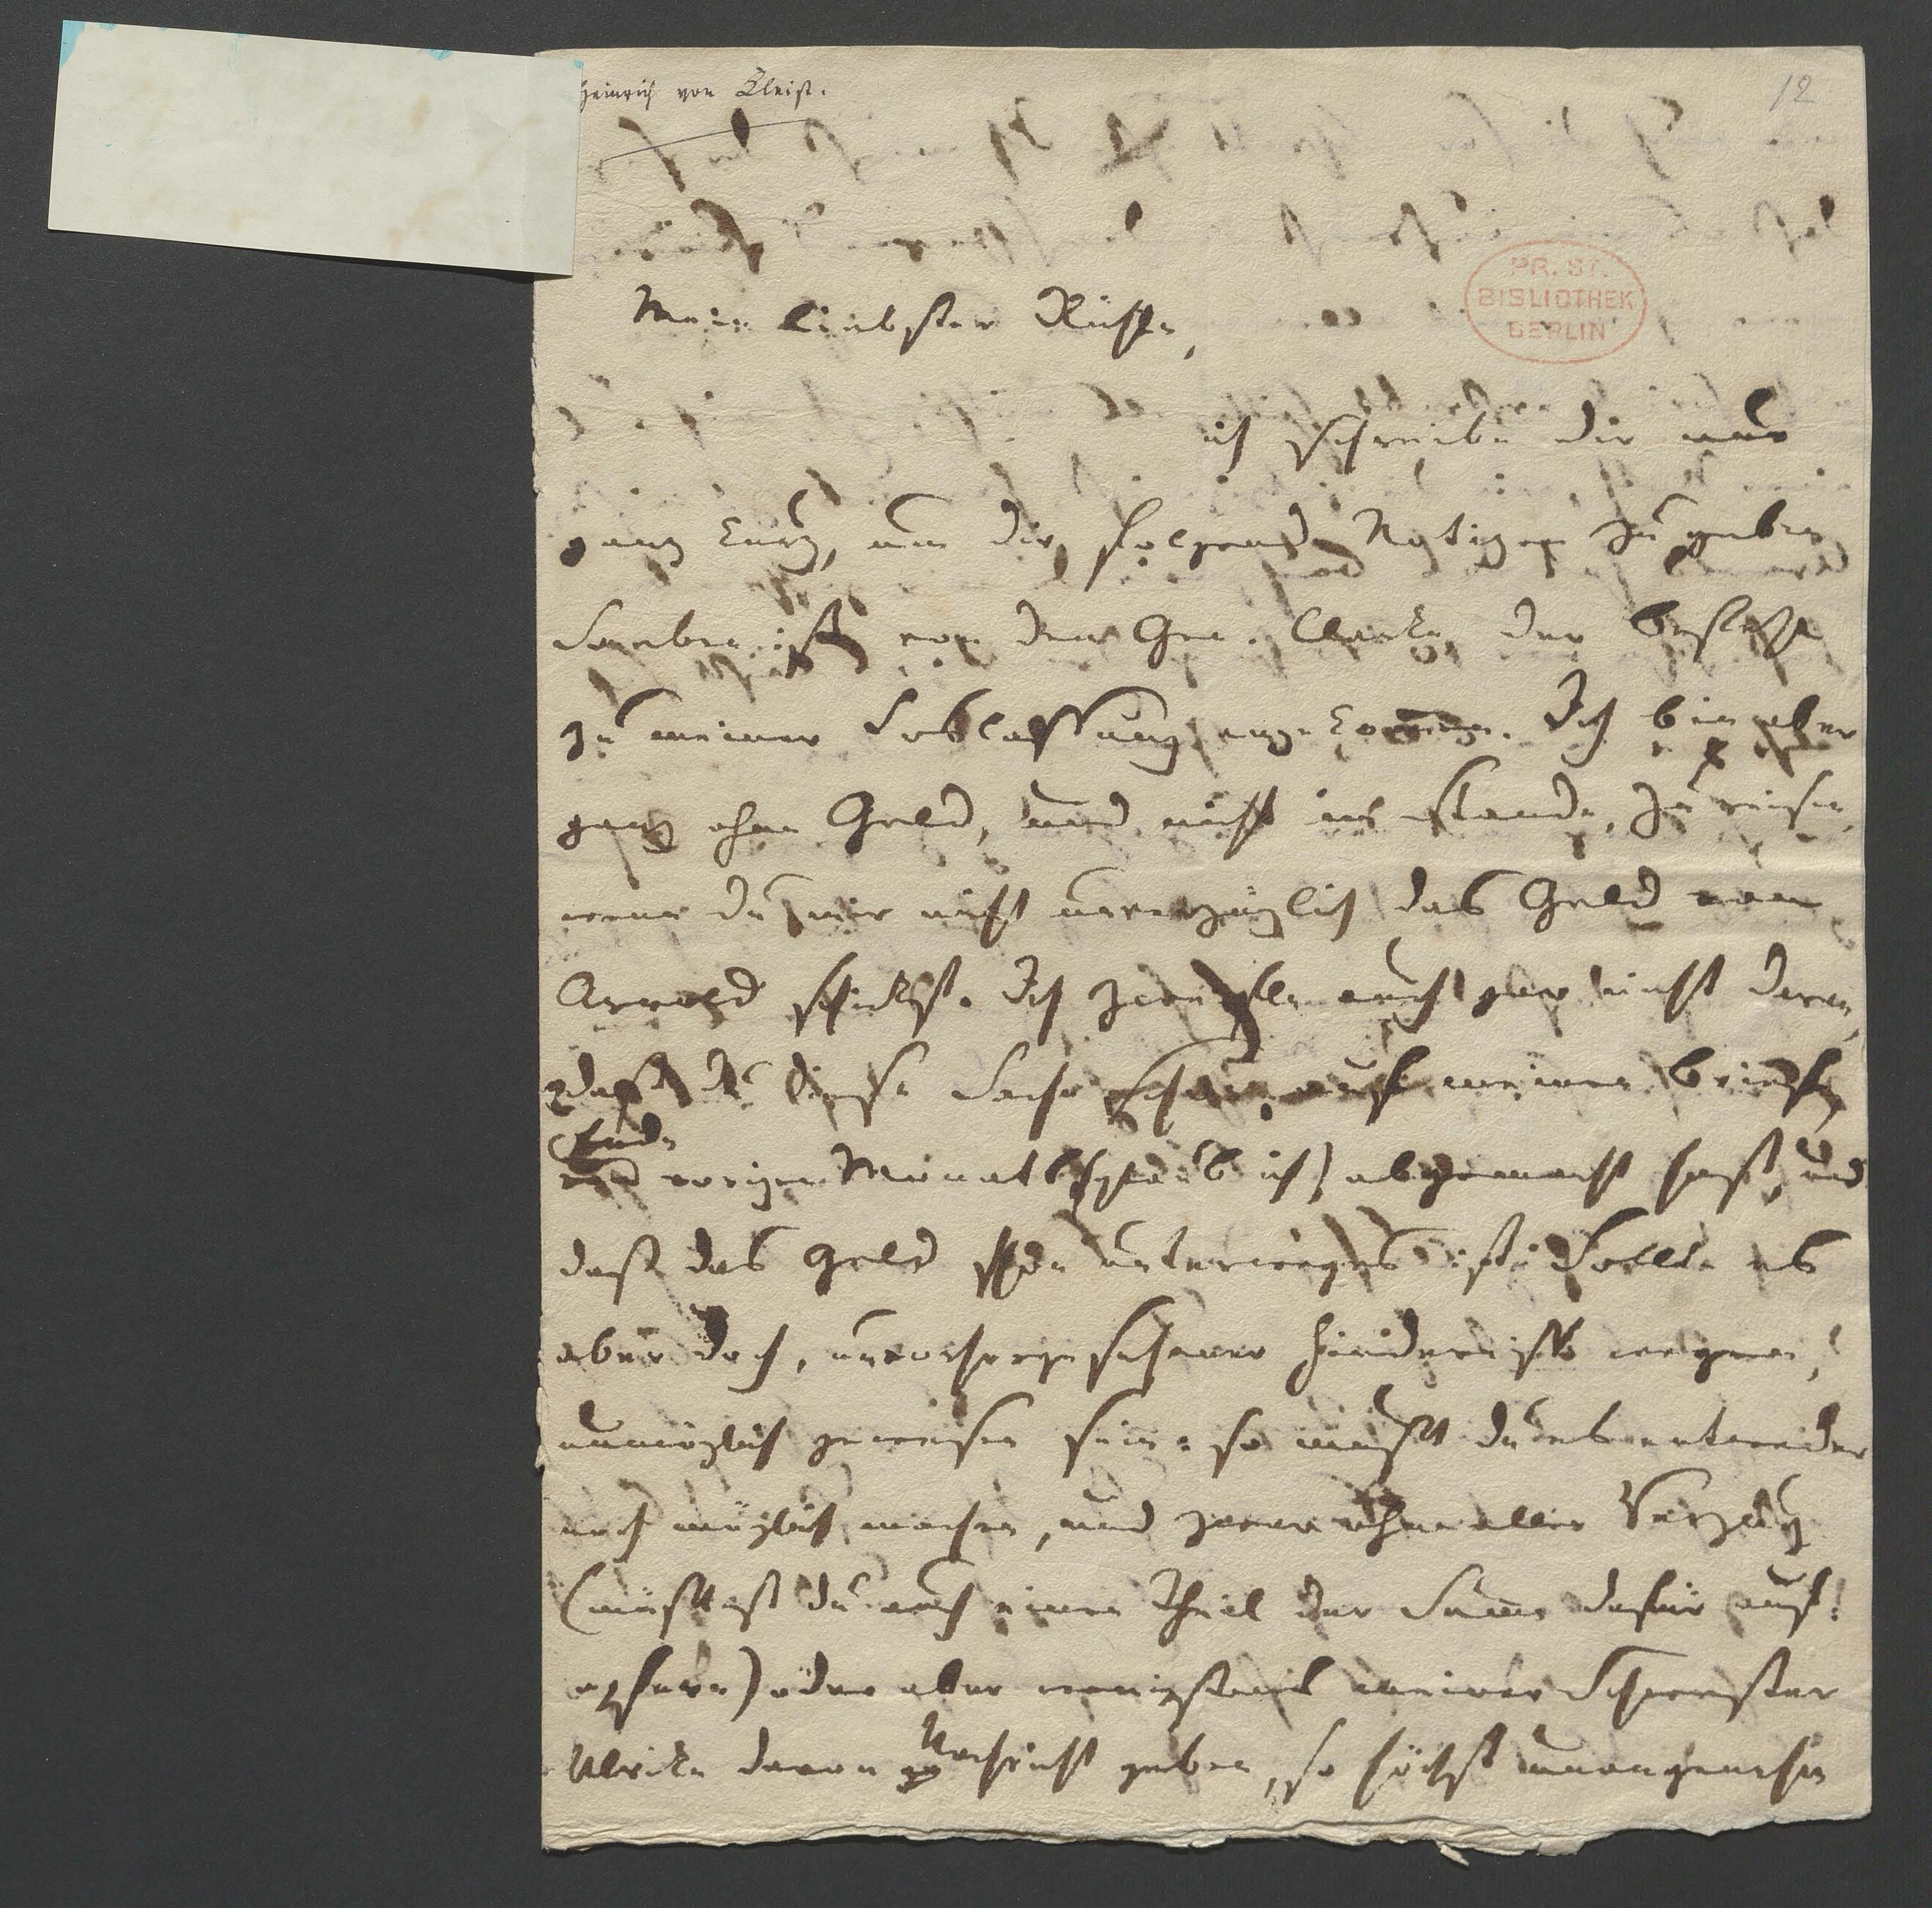 Heinrich von Kleist.
12
PR. ST.
BIBLIOTHEK
BERLIN
Mein liebster Rühle,
ich schreibe dir nur
ganz kurz, um dir folgende Notizen zu geben.
Soeben ist von dem Gen. Clarke der Befehl
zu meiner Loslassung angekommen. Ich bin aber
ganz ohne Geld, und nicht im Stande, zu reisen,
wenn du mir nicht unverzüglich das Geld von
Arnold schickst. Ich zweifle auch gar nicht daran,
daß du diese Sache schon auf meinen Brief
Ende
vorigen Monats (glaub ich) abgemacht hast, und
daß das Geld schon unterweges ist. Sollte es
aber doch, unvorhergesehener Hindernisse wegen,
unmöglich gewesen sein: so mußt du es entweder
noch möglich machen, und zwar ohne allen Verzug
(müßtest du auch einen Theil der Summe dafür auf-
opfern) oder aber wenigstens meiner Schwester
Ulrike davon Nachricht geben, so höchst unangenehm